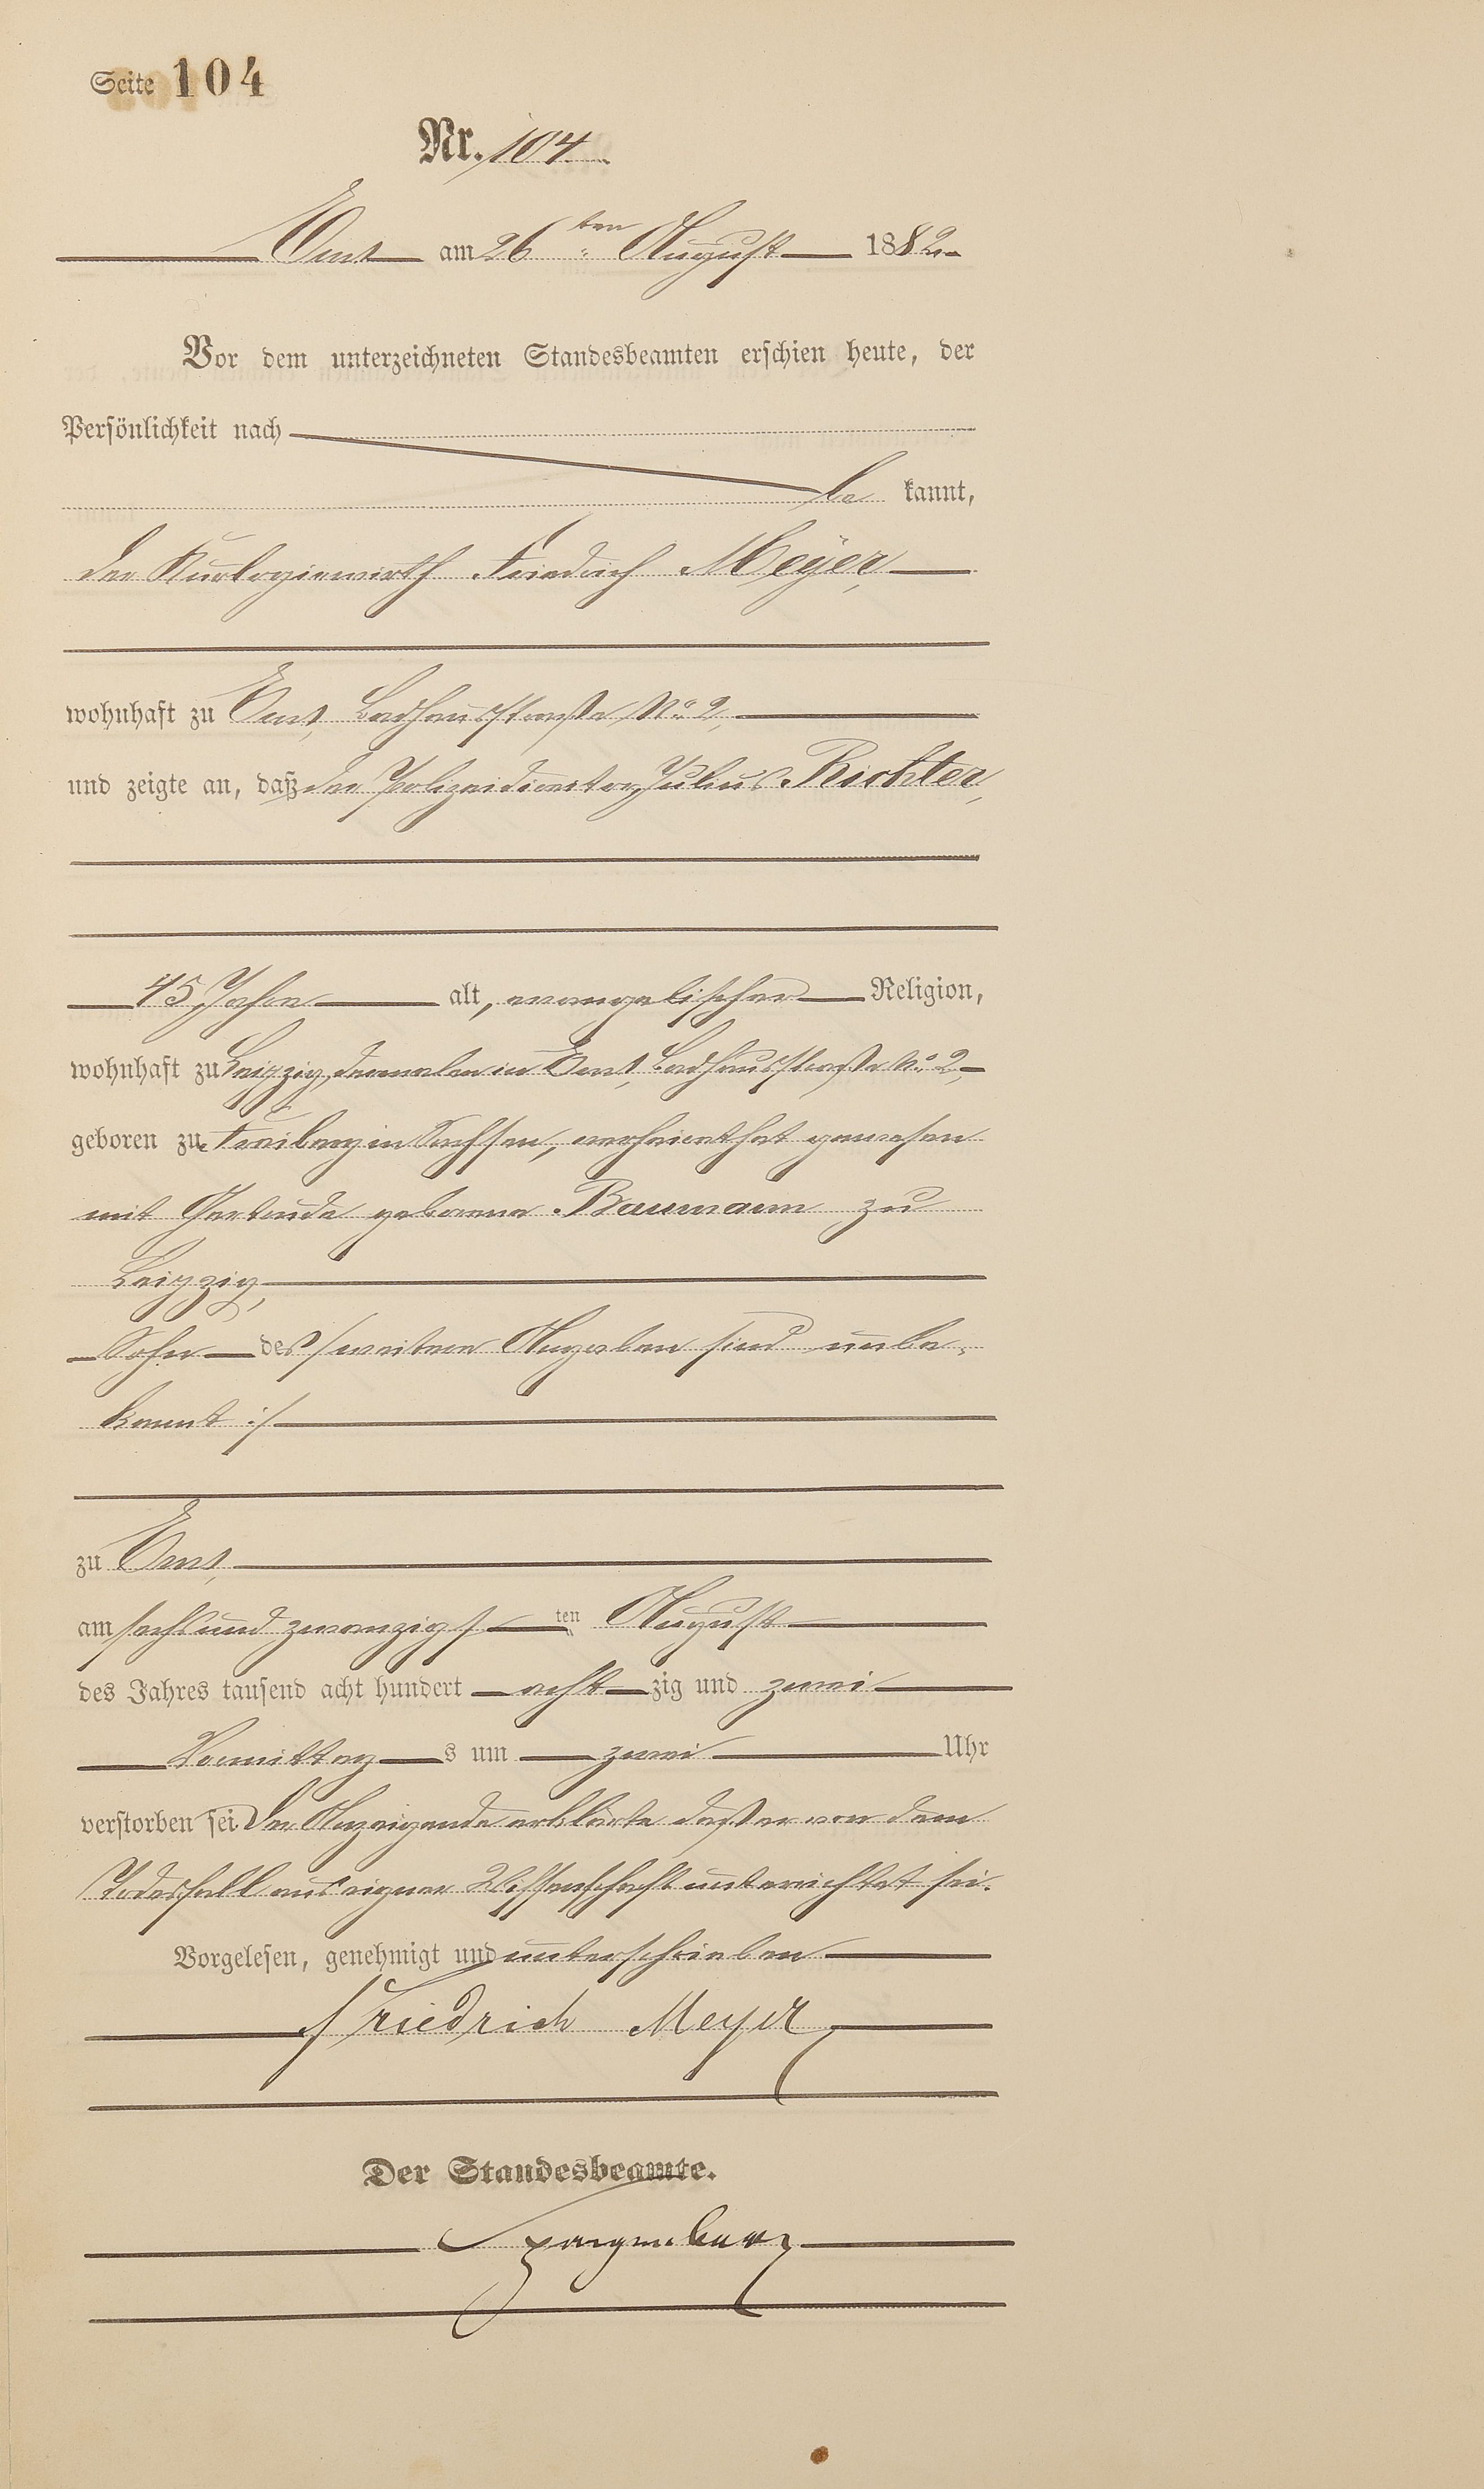 Seite 104
Nr. 104
Ems am 26ten August 1882
Vor dem unterzeichneten Standesbeamten erschien heute, der
Persönlichkeit nach
be kannt,
der Kurlogirwirth Friedrich Meyer,
wohnhaft zu Ems, Badhausstraße No 2,
und zeigte an, daß der Polizeidirektor Julius Richter,
45 Jahre alt, evangelischer Religion,
wohnhaft zu Leipzig, dermalen in Ems, Badhausstraße No 2,
geboren zu Freiberg in Sachsen, verheirathet gewesen
mit Gertrude geborene Baumann zu
Leipzig,
Sohn des /: weitere Angaben sind unbe-
kannt :/
zu Ems,
am sechsundzwanzigsten August
des Jahres tausend acht hundert achtzig und zwei
Vormittags um zwei Uhr
verstorben sei. Der Anzeigende erklärte daß er von dem
Todesfall aus eigner Wissenschaft unterrichtet sei.
Vorgelesen, genehmigt und unterschrieben
Friedrich Meyer
Der Standesbeamte.
Spangenberg